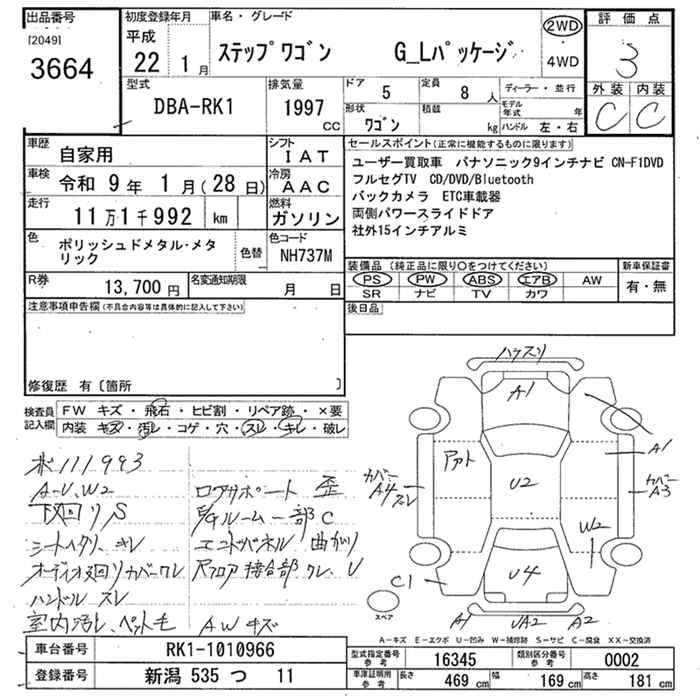 出品番号
[2049]
3664
初度登録年月
平成
22 1月
車名・グレード
ステップワゴン G_Lパッケージ
2WD
4WD
評価点
3
外装 内装
C C
型式
DBA-RK1
排気量
1997
CC
ドア
5
定員
8 人
形状
ワゴン
積載
kg
ディーラー・並行
モデル年式 年
ハンドル 左・右
車歴
自家用
シフト
IAT
車検
令和 9年 1月(28日)
冷房
AAC
走行
11万1千992 km
燃料
ガソリン
色
ポリッシュドメタル・メタリック
色替
色コード
NH737M
R券
13,700 円
名変通知期限
月 日
セールスポイント(正常に機能するものに限ります)
ユーザー買取車 パナソニック9インチナビ CN-F1DVD
フルセグTV CD/DVD/Bluetooth
バックカメラ ETC車載器
両側パワースライドドア
社外15インチアルミ
装備品(純正品に限り○をつけてください)
新車保証書
PS PW ABS エアB AW
SR ナビ TV カワ
有・無
注意事項申告欄(不具合内容等は具体的に記入して下さい)
後日品
修復歴 有〔箇所 〕
検査員
記入欄
FW キズ・飛石・ヒビ割・リペア跡・×要
内装 キズ・汚レ・コゲ・穴・スレ・キレ・破レ
111993
A-U,W2
下回りS
シートヘタリ、キレ
オーディオ廻リカバーワレ
ハンドル スレ
室内汚レ、ペット毛
ロアサポート 歪
E/Gルーム一部C
エンドパネル 曲がり
Rフロア接合部 ワレ、U
AWキズ
ハウスリ
A1
A1
カバー
A4スレ
カバー
A3
U2
W2
C1
U4
スペア
A1
UA2
A2
A-キズ E-エクボ U-凹み W-補修跡 S-サビ C-腐食 XX-交換済
車台番号
RK1-1010966
登録番号
新潟 535 つ 11
型式指定番号
参考
16345
類別区分番号
参考
0002
車庫証明用
参考
長さ
469 cm
幅
169 cm
高さ
181 cm